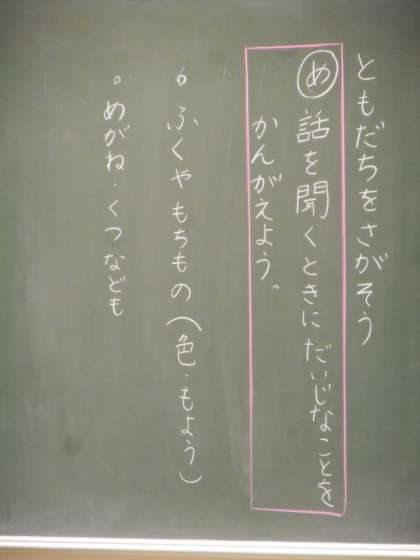 ともだちをさがそう
め 話を聞くときにだいじなことを
かんがえよう。
。ふくやもちもの(色・もよう)
。めがね・くつなども